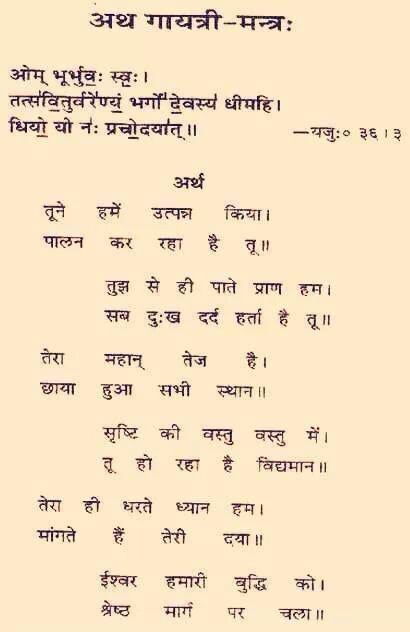 अथ गायत्री-मन्त्रः
ओम् भूर्भुवः॒ स्वः॒।
तत्स॑वि॒तुर्वरे॑ण्यं॒ भर्गो॑ दे॒वस्य॑ धीमहि।
धियो॒ यो नः॑ प्रचो॒दया॑त्॥ —यजुः० ३६।३
अर्थ
तूने हमें उत्पन्न किया।
पालन कर रहा है तू॥
तुझ से ही पाते प्राण हम।
सब दुःख दर्द हर्ता है तू॥
तेरा महान् तेज है।
छाया हुआ सभी स्थान॥
सृष्टि की वस्तु वस्तु में।
तू हो रहा है विद्यमान॥
तेरा ही धरते ध्यान हम।
मांगते हैं तेरी दया॥
ईश्वर हमारी बुद्धि को।
श्रेष्ठ मार्ग पर चला॥